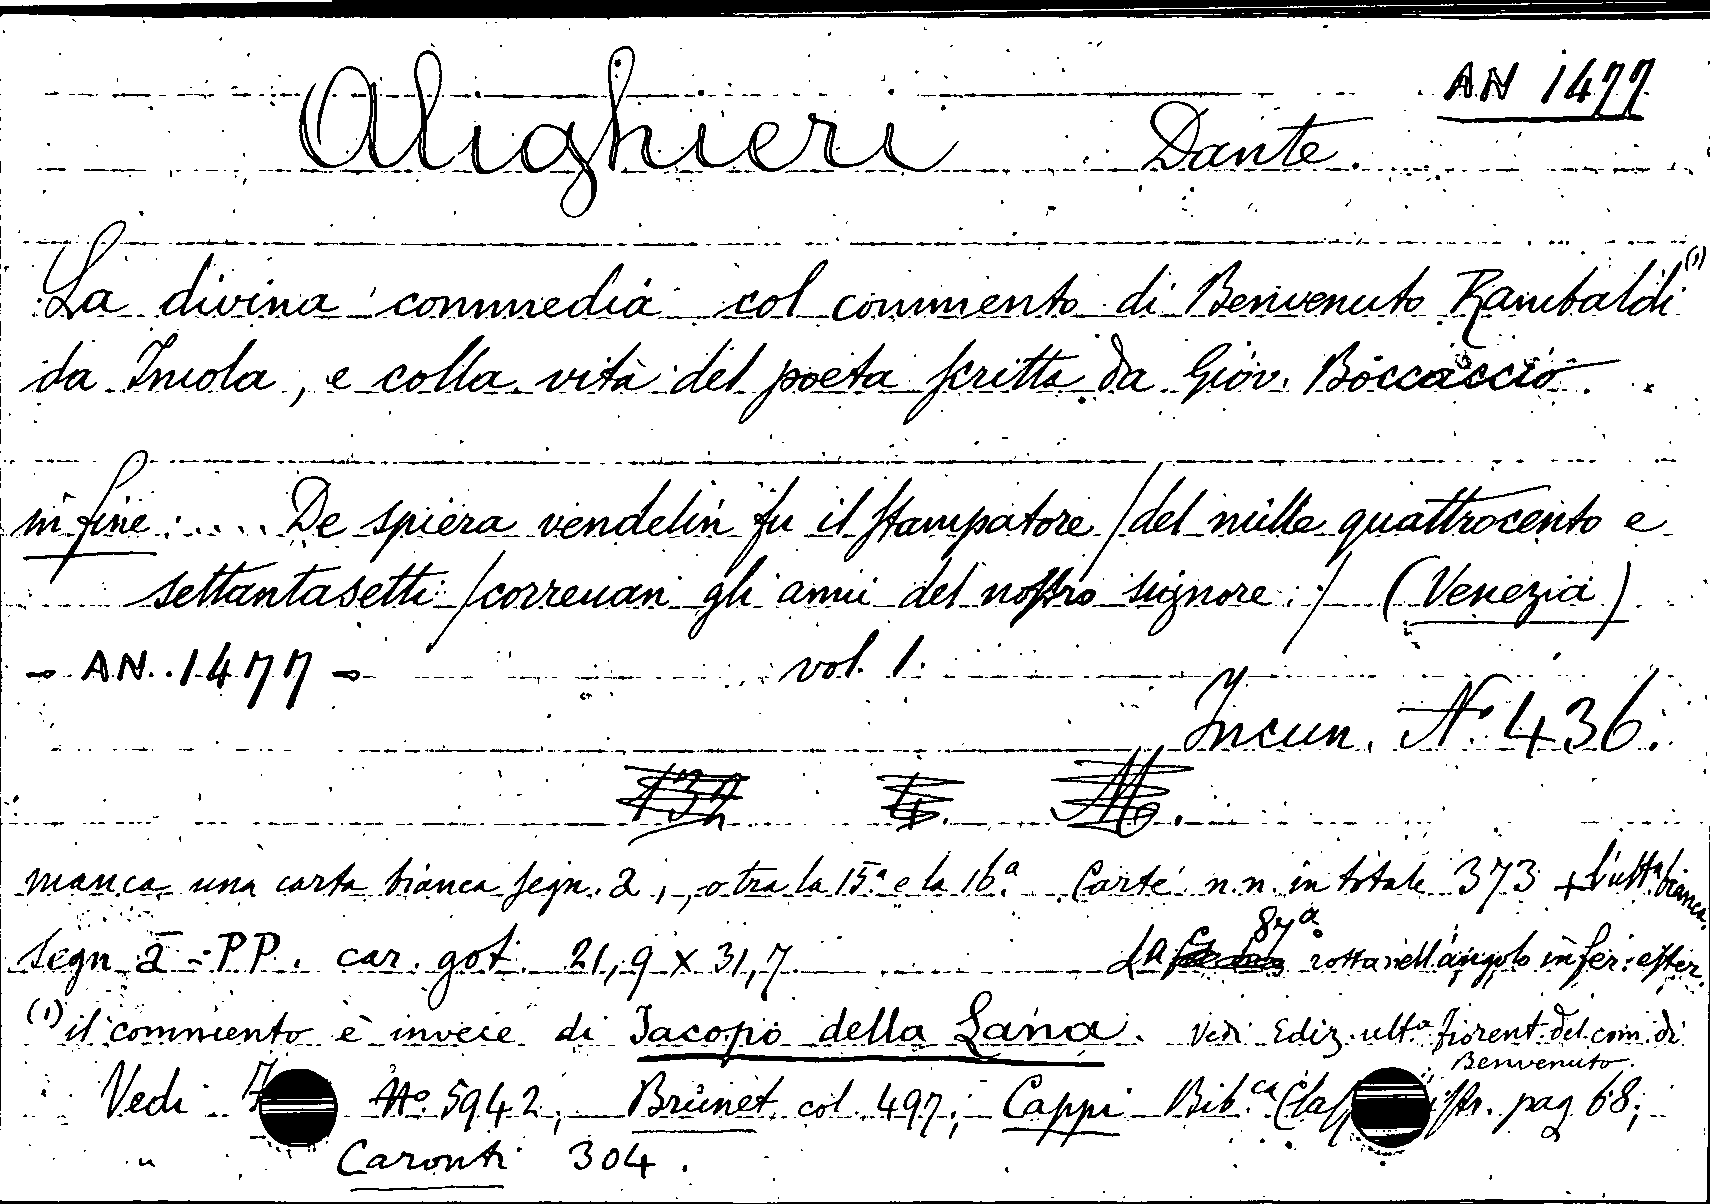 AN 1477
Alighieri Dante.
La divina commedia col commento di Benvenuto Rambaldi (1)
da Imola, e colla vita del poeta scritta da Giov. Boccaccio.
in fine: .... De spiera vendelin fu il stampatore / del mille quattrocento e
settantasetti / correuan gli anni del nostro signore. / (Venezia)
- AN. 1477 - vol. 1.
Incun. No. 436.
manca una carta bianca segn. 2, o tra la 15.a e la 16.a Carte n.n. in totale 373 + l'ulta bianca.
segn a - PP. car. got. 21,9 x 31,7 La 87a rotta nell'angolo infer: ester.
(1) il commento è invece di Jacopo della Lana. Vedi Ediz. ulta fiorent. del com. di Benvenuto.
Vedi No. 5942, Brunet col. 497; Cappi Bib.ca pag 68;
" Caronti 304.